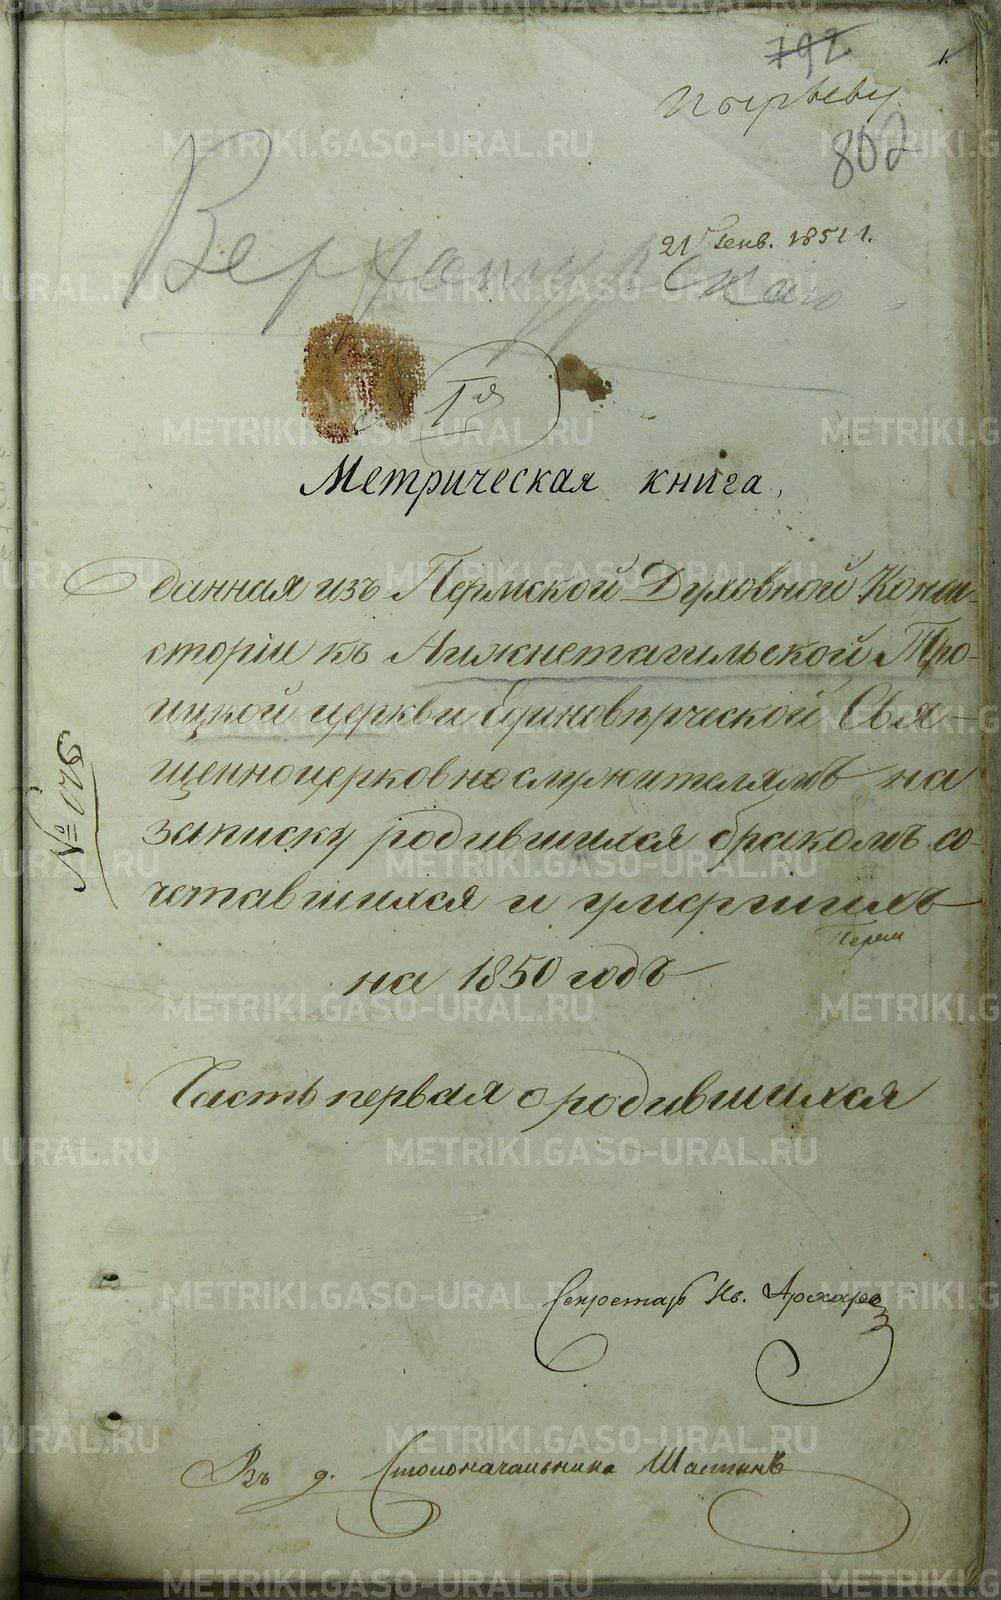 792
1.
802
21 Генв. 1851 г.
Верхотурскаго
1я
Метрическая книга,
данная изъ Пермской Духовной Конси-
сторіи къ Нижнетагильской Тро-
ицкой церкви Единовѣрческой Свя-
щенноцерковнослужителямъ на
записку родившихся бракомъ со-
четавшихся и умершихъ
на 1850 годъ
№ 920
Часть первая о родившихся
Секретарь Ив. Архаров
Въ д. Столоначальника Шастинъ
METRIKI.GASO-URAL.RU